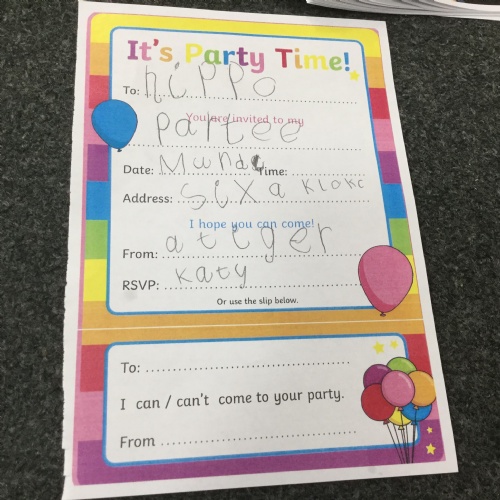 It's Party Time!
To: hippo
You are invited to my
partee
Date: Munde Time:
Address: Six a klokc
I hope you can come!
From: a tigger
RSVP: Katy
Or use the slip below.
To:
I can / can't come to your party.
From